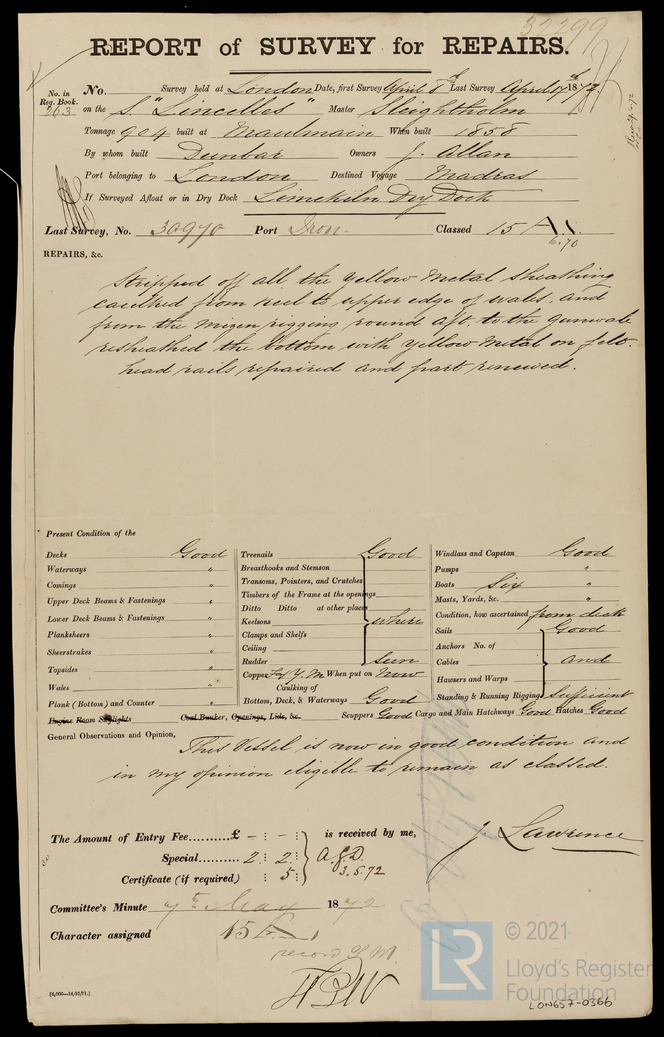 32299
REPORT of SURVEY for REPAIRS.
No. in Reg. Book. No. Survey held at London Date, first Survey April 8th Last Survey April 17th 1872
263 on the S. "Lincelles" Master Sleightholm
Tonnage 904 built at Maulmain When built 1858
By whom built Dunbar Owners J. Allan
Port belonging to London Destined Voyage Madras
If Surveyed Afloat or in Dry Dock Limekiln Dry Dock
Last Survey, No. 30970 Port Classed 15 A 1.
6.70
REPAIRS, &c.
Stripped off all the Yellow Metal Sheathing
caulked from keel to upper edge of wales, and
from the mizen rigging round aft. to the gunwale
resheathed the bottom with Yellow Metal on felt.
head rails repaired and part renewed.
Present Condition of the
Decks Good
Waterways "
Comings "
Upper Deck Beams & Fastenings "
Lower Deck Beams & Fastenings "
Planksheers "
Sheerstrakes "
Topsides "
Wales "
Plank (Bottom) and Counter "
Engine Room Skylights Coal Bunker, Openings, Lids, &c.
Treenails Good
Breasthooks and Stemson
Transoms, Pointers, and Crutches
Timbers of the Frame at the openings
Ditto Ditto at other places
Keelsons where
Clamps and Shelfs
Ceiling
Rudder seen
Copper Y. M. When put on Now
Caulking of
Bottom, Deck, & Waterways Good
Windlass and Capstan Good
Pumps "
Boats Six "
Masts, Yards, &c. "
Condition, how ascertained from deck
Sails Good
Anchors No. of
Cables and
Hawsers and Warps
Standing & Running Rigging Sufficient
Scuppers Good Cargo and Main Hatchways Good Hatches Good
General Observations and Opinion, This Vessel is now in good condition and
in my opinion eligible to remain as classed.
The Amount of Entry Fee.........£ - : - : is received by me,
Special......... 2 : 2 : A.J.D.
Certificate (if required) : 5 : 3.5.72
J Lawrence
Committee's Minute 7th May 1872
Character assigned 15 A 1
record Y.M.
[6,000—14/10/71.]
© 2021
LR
Lloyd's Register
Foundation
LON657-0366